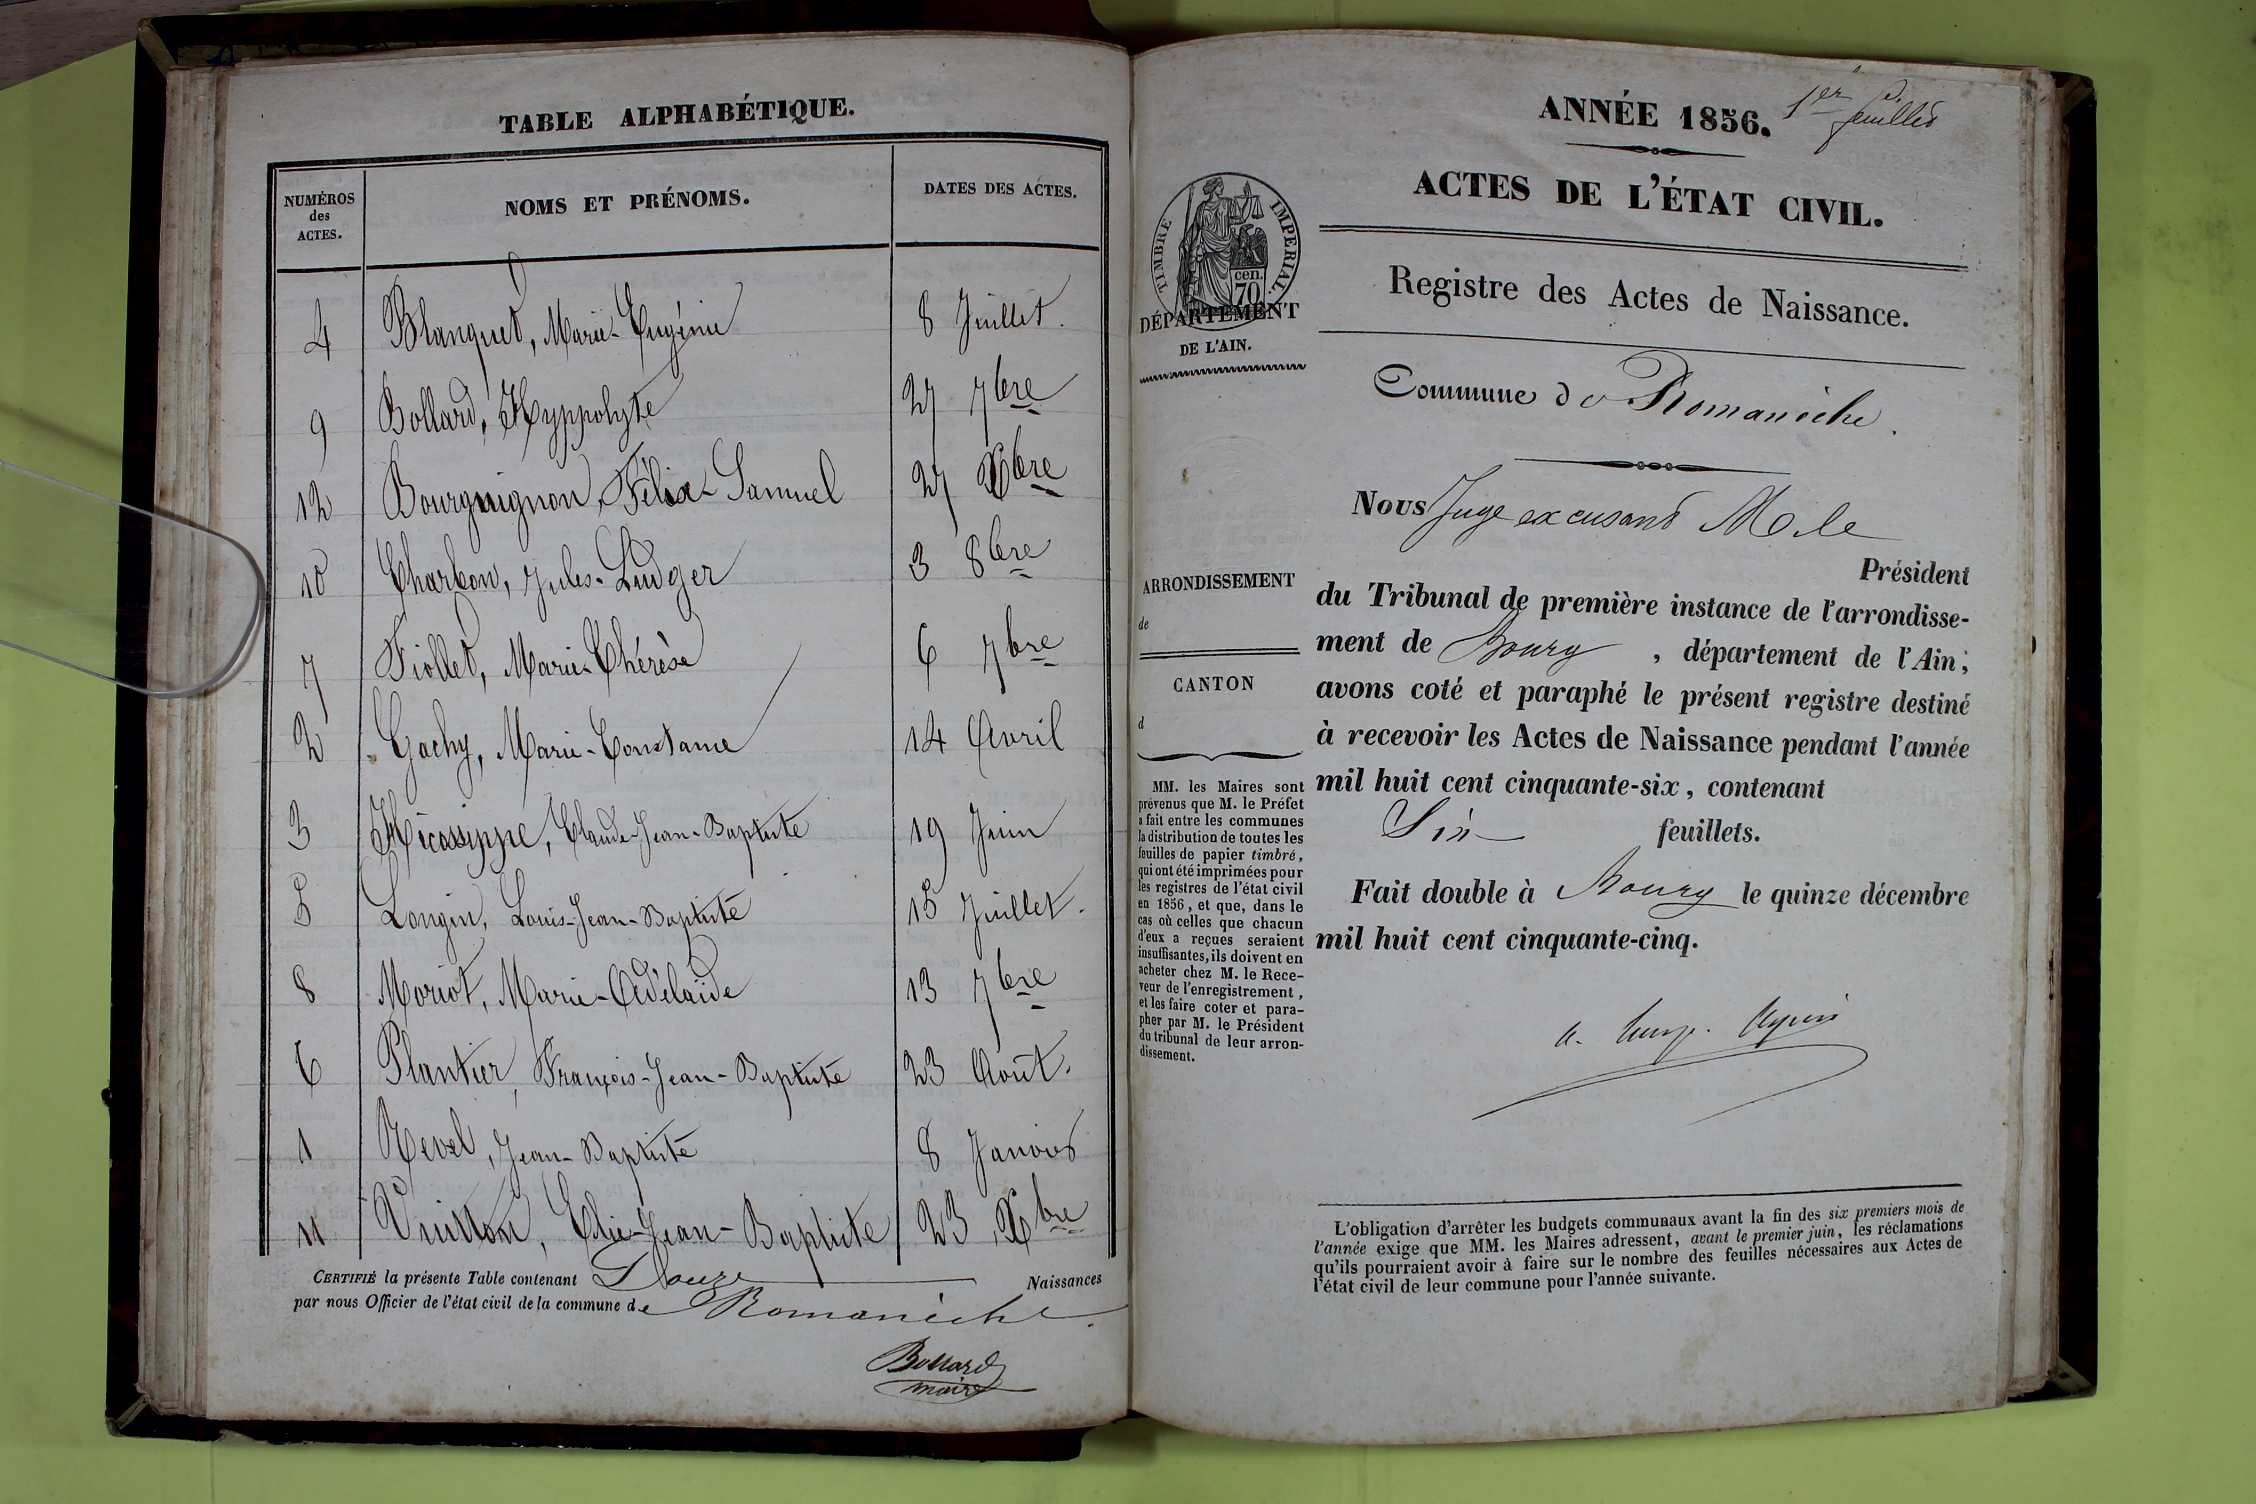 TABLE ALPHABÉTIQUE.
NUMÉROS
des
ACTES.
NOMS ET PRÉNOMS.
DATES DES ACTES.
4 Blanquet, Marie-Eugénie 8 Juillet.
9 Bollard, Hyppolyte 27 7bre
12 Bourguignon, Félix-Samuel 27 Xbre
10 Charbon, Jules-Ludger 3 8bre
7 Fiollet, Marie-Thérèse 6 7bre
2 Gachy, Marie-Constance 14 Avril
3 Claude-Jean-Baptiste 19 Juin
5 Longin, Louis-Jean-Baptiste 15 Juillet.
8 Moriot, Marie-Adélaïde 13 7bre
6 Plantier, François-Jean-Baptiste 23 Août.
1 Revel, Jean-Baptiste 8 Janvier
11 Vuitton, Elie-Jean-Baptiste 23 Xbre
CERTIFIÉ la présente Table contenant Douze Naissances
par nous Officier de l'état civil de la commune de Romanèche.
Bollard
maire
1er feuillet
ANNÉE 1856.
ACTES DE L'ÉTAT CIVIL.
TIMBRE IMPERIAL.
cen.
70
DÉPARTEMENT
DE L'AIN.
Registre des Actes de Naissance.
Commune de Romanèche.
Nous Juge excusant M. le
Président
du Tribunal de première instance de l'arrondisse-
ment de Bourg, département de l'Ain;
avons coté et paraphé le présent registre destiné
à recevoir les Actes de Naissance pendant l'année
mil huit cent cinquante-six, contenant
Six feuillets.
Fait double à Bourg le quinze décembre
mil huit cent cinquante-cinq.
ARRONDISSEMENT
de
CANTON
d
MM. les Maires sont
prévenus que M. le Préfet
a fait entre les communes
la distribution de toutes les
feuilles de papier timbré,
qui ont été imprimées pour
les registres de l'état civil
en 1856, et que, dans le
cas où celles que chacun
d'eux a reçues seraient
insuffisantes, ils doivent en
acheter chez M. le Rece-
veur de l'enregistrement,
et les faire coter et para-
pher par M. le Président
du tribunal de leur arron-
dissement.
L'obligation d'arrêter les budgets communaux avant la fin des six premiers mois de
l'année exige que MM. les Maires adressent, avant le premier juin, les réclamations
qu'ils pourraient avoir à faire sur le nombre des feuilles nécessaires aux Actes de
l'état civil de leur commune pour l'année suivante.